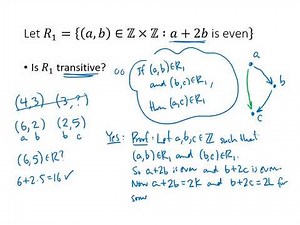 Let R₁ = {(a, b) ∈ ℤ × ℤ : a + 2b is even}
• Is R₁ transitive?
(4,3) (3,?)
(6,2) (2,5)
a b b c
(6,5)∈R?
6+2·5=16 ✓
If (a,b)∈R₁
and (b,c)∈R₁,
then (a,c)∈R₁
a
b
c
Yes: Proof: Let a,b,c∈ℤ such that
(a,b)∈R₁ and (b,c)∈R₁.
So a+2b is even and b+2c is even.
Now a+2b=2K and b+2c=2L for
some